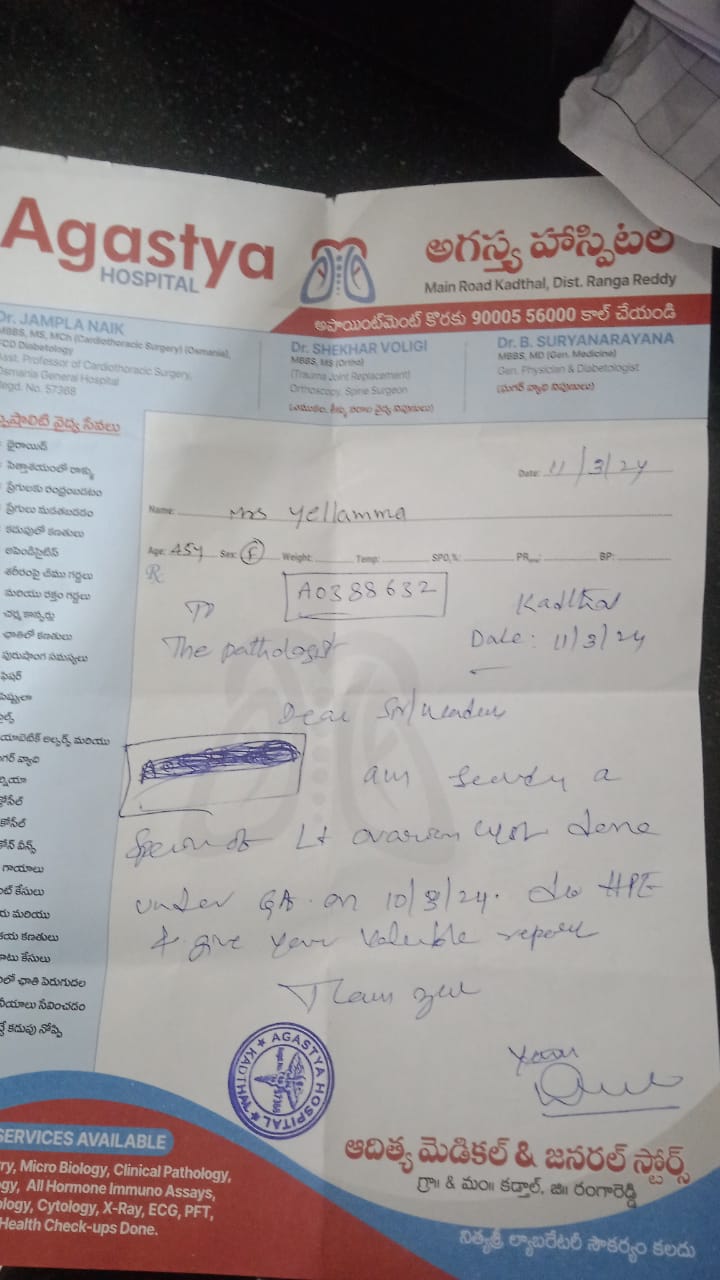 Agastya
HOSPITAL
అగస్త్య హాస్పిటల్
Main Road Kadthal, Dist. Ranga Reddy
అపాయింట్‌మెంట్ కొరకు 90005 56000 కాల్ చేయండి
Dr. JAMPLA NAIK
MBBS, MS, MCh (Cardiothoracic Surgery) (Osmania),
CD Diabetology
Asst. Professor of Cardiothoracic Surgery,
Osmania General Hospital
Regd. No. 57368
Dr. SHEKHAR VOLIGI
MBBS, MS (Ortho)
(Trauma Joint Replacement)
Orthoscopy, Spine Surgeon
Dr. B. SURYANARAYANA
MBBS, MD (Gen. Medicine)
Gen. Physician & Diabetologist
(షుగర్ వ్యాధి నిపుణులు)
వైద్య సేవలు
థైరాయిడ్
పిత్తాశయంలో రాళ్ళు
ప్రేగులకు రంధ్రంపడటం
ప్రేగులు మడతబడడం
కడుపులో కణతులు
అపెండిసైటిస్
శరీరంపై చీము గడ్డలు
మరియు రక్తం గడ్డలు
చర్మ కాన్సర్లు
ఛాతిలో కణతులు
పురుషాంగ సమస్యలు
గాయాలు
కేసులు
మరియు
కణతులు
కాటు కేసులు
లో ఛాతి పెరుగుదల
సేవించడం
కడుపు నొప్పి
Date: 11/3/24
Name: Mrs Yellamma
Age: 45y Sex: F Weight: Temp: SPO₂%: PR BP:
R
A0388632
To Kadthal
The pathologist Date: 11/3/24
Dear Sir/Madam
am sending a
Lt ovarian cyst done
under GA on 10/3/24. do HPE
& give your valuble report
Thank you
AGASTYA HOSPITAL
KADTHAL
57368
SERVICES AVAILABLE
ry, Micro Biology, Clinical Pathology,
gy, All Hormone Immuno Assays,
ology, Cytology, X-Ray, ECG, PFT,
Health Check-ups Done.
ఆదిత్య మెడికల్ & జనరల్ స్టోర్స్
గ్రా॥ & మం॥ కడ్తాల్, జి॥ రంగారెడ్డి
నిత్యశ్రీ ల్యాబరేటరీ సౌకర్యం కలదు